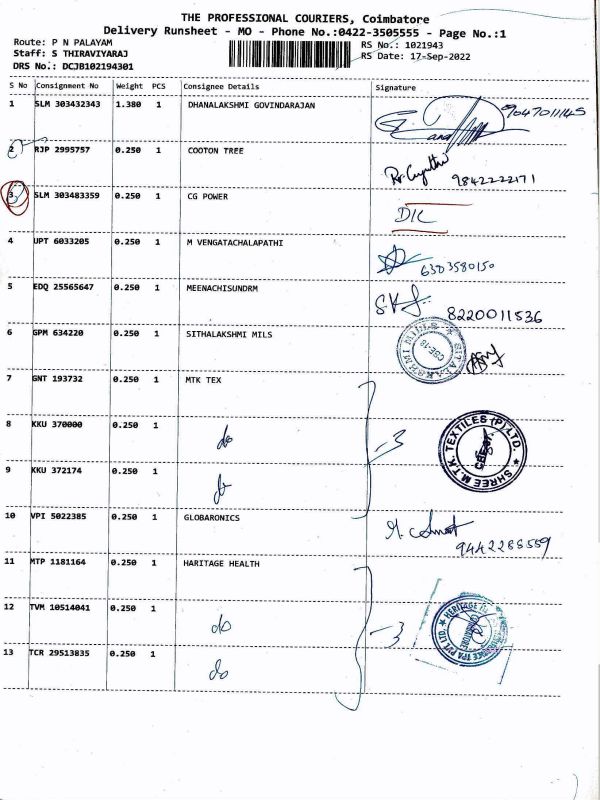 THE PROFESSIONAL COURIERS, Coimbatore
Delivery Runsheet - MO - Phone No.:0422-3505555 - Page No.:1
Route: P N PALAYAM
RS No.: 1021943
Staff: S THIRAVIYARAJ
RS Date: 17-Sep-2022
DRS No.: DCJB102194301
S No Consignment No Weight PCS Consignee Details Signature
1 SLM 303432343 1.380 1 DHANALAKSHMI GOVINDARAJAN 9047011145
2 RJP 2995757 0.250 1 COOTON TREE 9842222171
3 SLM 303483359 0.250 1 CG POWER
4 UPT 6033205 0.250 1 M VENGATACHALAPATHI 6303580150
5 EDQ 25565647 0.250 1 MEENACHISUNDRM 8220011536
6 GPM 634220 0.250 1 SITHALAKSHMI MILS
7 GNT 193732 0.250 1 MTK TEX
8 KKU 370000 0.250 1 do -3 SHREE M.T.K. TEXTILES (P) LTD.
9 KKU 372174 0.250 1 do
10 VPI 5022385 0.250 1 GLOBARONICS 9442288559
11 MTP 1181164 0.250 1 HARITAGE HEALTH
12 TVM 10514041 0.250 1 do -3
13 TCR 29513835 0.250 1 do